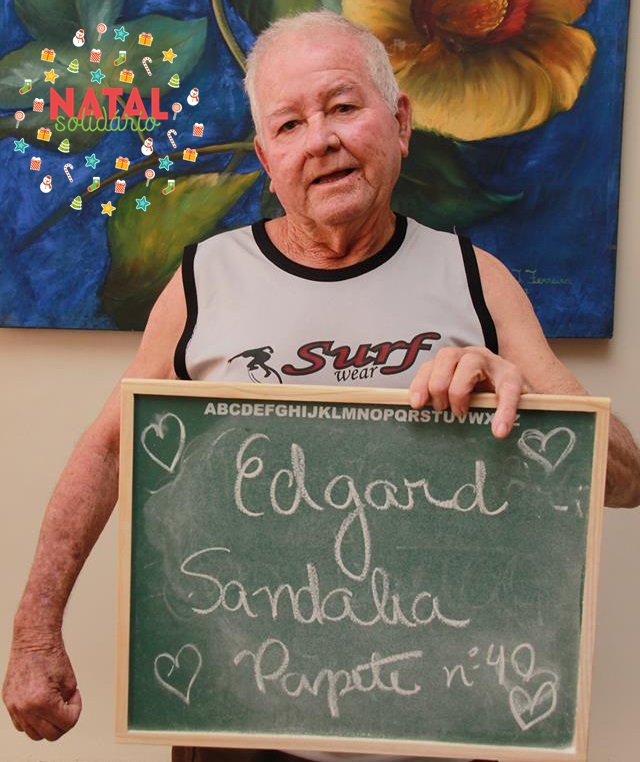 NATAL
solidário
J. Ferreira
Surf
wear
ABCDEFGHIJKLMNOPQRSTUVWXYZ
Edgard
Sandalia
Papete nº 40